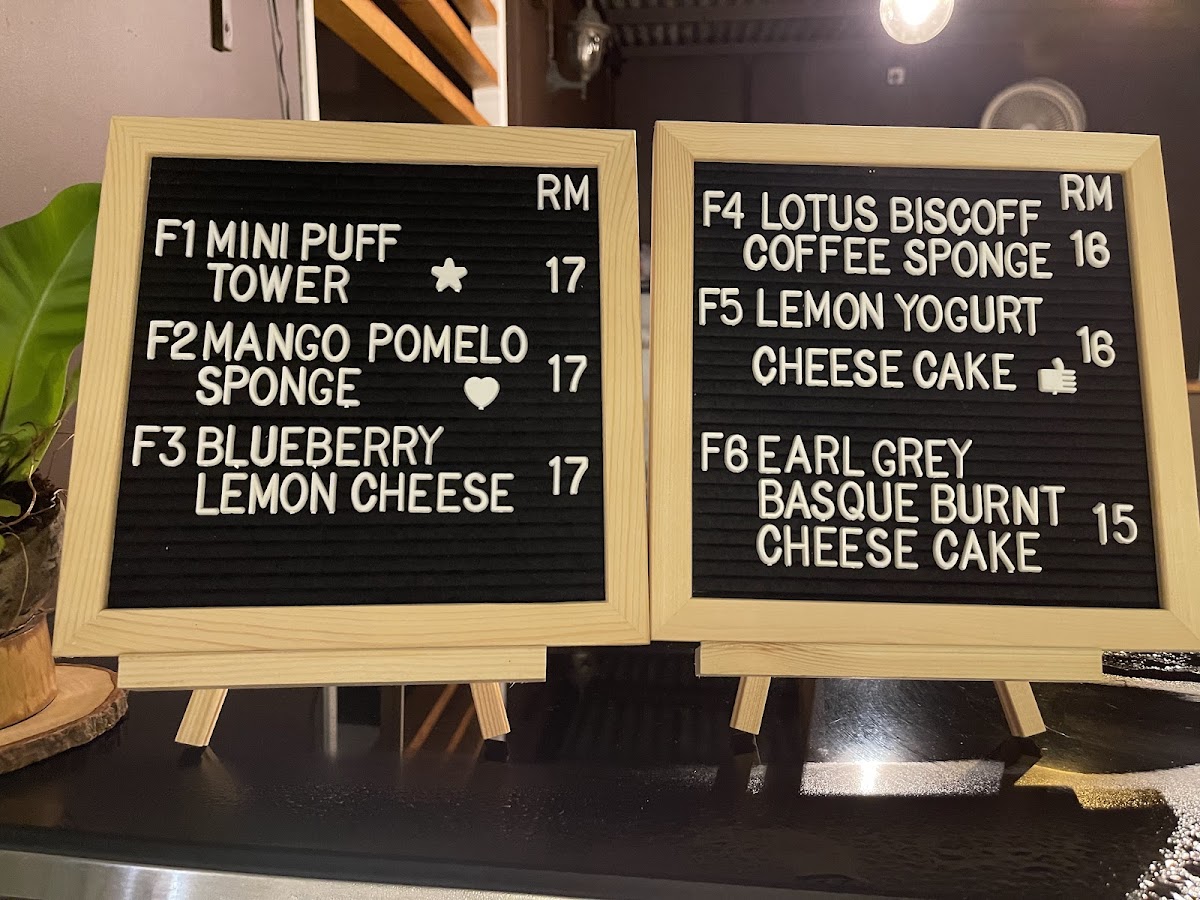 RM
F1 MINI PUFF
TOWER 17
F2 MANGO POMELO
SPONGE 17
F3 BLUEBERRY
LEMON CHEESE 17
RM
F4 LOTUS BISCOFF
COFFEE SPONGE 16
F5 LEMON YOGURT
CHEESE CAKE 16
F6 EARL GREY
BASQUE BURNT
CHEESE CAKE 15